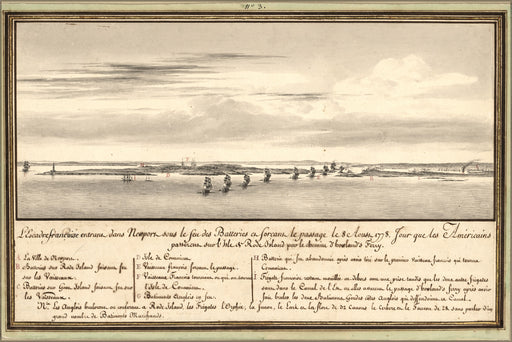 N° 3.
L'Escadre françoise entrant dans Newport sous le feu des Batteries et forçant le passage le 8 Aoust 1778. Jour que les Américains
passèrent sur l'Isle de Rode Island par le chemin d'howland's Ferry.
A La Ville de Newport.
B Batteries sur Rode Island faisant feu
sur les Vaisseaux.
C Batteries sur Goat Island faisant feu sur
les Vaisseaux.
D Isle de Conanicut.
E Vaisseaux françois forçant le passage.
F Vaisseaux françois tournant en
l'isle de Conanicut.
G Batiments Anglois en feu.
H Batterie qui fut abandonnée après avoir tiré sur le premier Vaisseau françois qui tourna
Conanicut.
I Frégate françoise
dans le Canal de l'Est ou elles avoient le passage d'howland's ferry après avoir
fait bruler les deux Batiments Gardes côtes Anglois qui deffendoient ce Canal.
Nta. Les Anglois brulerent et coulerent a Rode Island, les Frégates l'Orphée, la Junon, le Lark et la flore de 32 Canons le Cerbere et le Faucon de 28 sans parler d'un
grand nombre de Batiments Marchands.